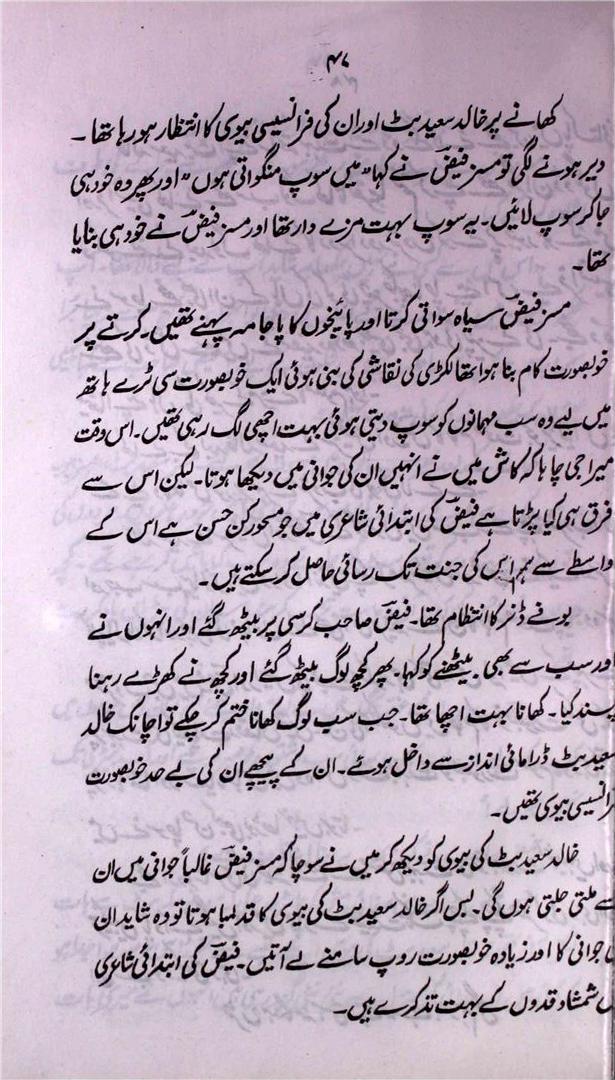 ۴۷
کھانے پر خالد سعید بٹ اور ان کی فرانسیسی بیوی کا انتظار ہو رہا تھا۔
دیر ہونے لگی تو مسز فیضؔ نے کہا "میں سوپ منگواتی ہوں" اور پھر وہ خود ہی
جا کر سوپ لائیں۔ یہ سوپ بہت مزے دار تھا اور مسز فیضؔ نے خود ہی بنایا
تھا۔
مسز فیضؔ سیاہ سواتی کرتا اور پائنچوں کا پاجامہ پہنے تھیں۔ کرتے پر
خوبصورت کام بنا ہوا تھا لکڑی کی نقاشی کی بنی ہوئی ایک خوبصورت سی ٹرے ہاتھ
میں لیے وہ سب مہمانوں کو سوپ دیتی ہوئی بہت اچھی لگ رہی تھیں۔ اس وقت
میرا جی چاہا کہ کاش میں نے انہیں ان کی جوانی میں دیکھا ہوتا۔ لیکن اس سے
فرق ہی کیا پڑتا ہے فیضؔ کی ابتدائی شاعری میں جو مسحور کن حسن ہے اس کے
واسطے سے ہم اس کی جنت تک رسائی حاصل کر سکتے ہیں۔
بوفے ڈنر کا انتظام تھا۔ فیضؔ صاحب کرسی پر بیٹھ گئے اور انہوں نے
اور سب سے بھی بیٹھنے کو کہا۔ پھر کچھ لوگ بیٹھ گئے اور کچھ نے کھڑے رہنا
پسند کیا۔ کھانا بہت اچھا تھا۔ جب سب لوگ کھانا ختم کر چکے تو اچانک خالد
سعید بٹ ڈرامائی انداز سے داخل ہوئے۔ ان کے پیچھے ان کی بے حد خوبصورت
فرانسیسی بیوی تھیں۔
خالد سعید بٹ کی بیوی کو دیکھ کر میں نے سوچا کہ مسز فیضؔ غالباً جوانی میں ان
سے ملتی جلتی ہوں گی۔ بس اگر خالد سعید بٹ کی بیوی کا قد لمبا ہوتا تو وہ شاید ان
جوانی کا اور زیادہ خوبصورت روپ سامنے لے آتیں۔ فیضؔ کی ابتدائی شاعری
شمشاد قدوں کے بہت تذکرے ہیں۔